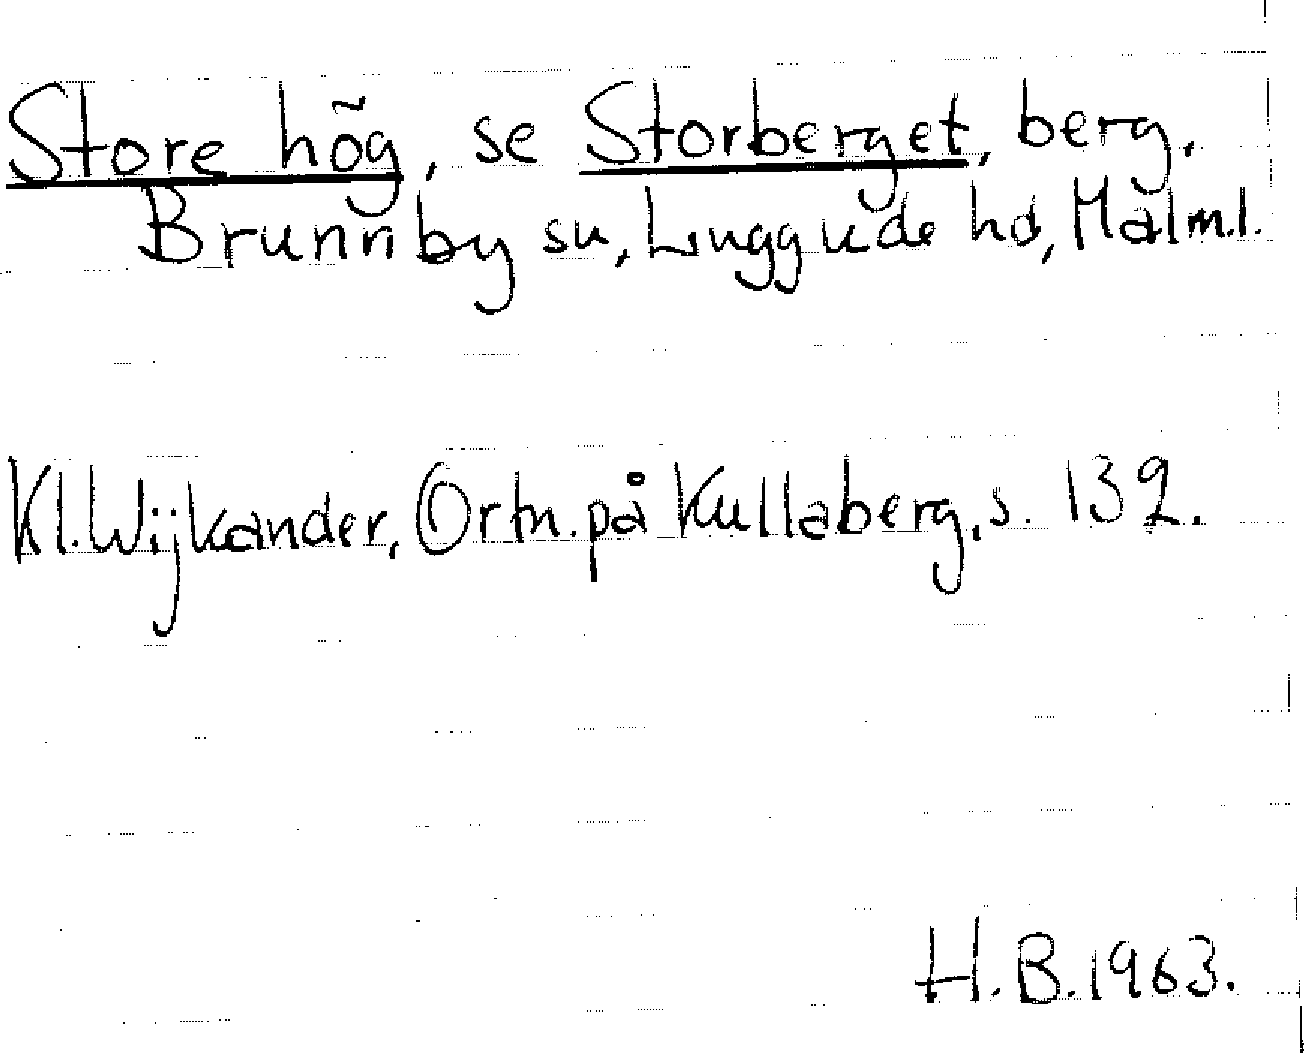 Store hög, se Storberget, berg,
Brunnby sn, Luggude hd, Malm.l.
Kl. Wijkander, Ortn. på Kullaberg, s. 132.
H.B. 1963.